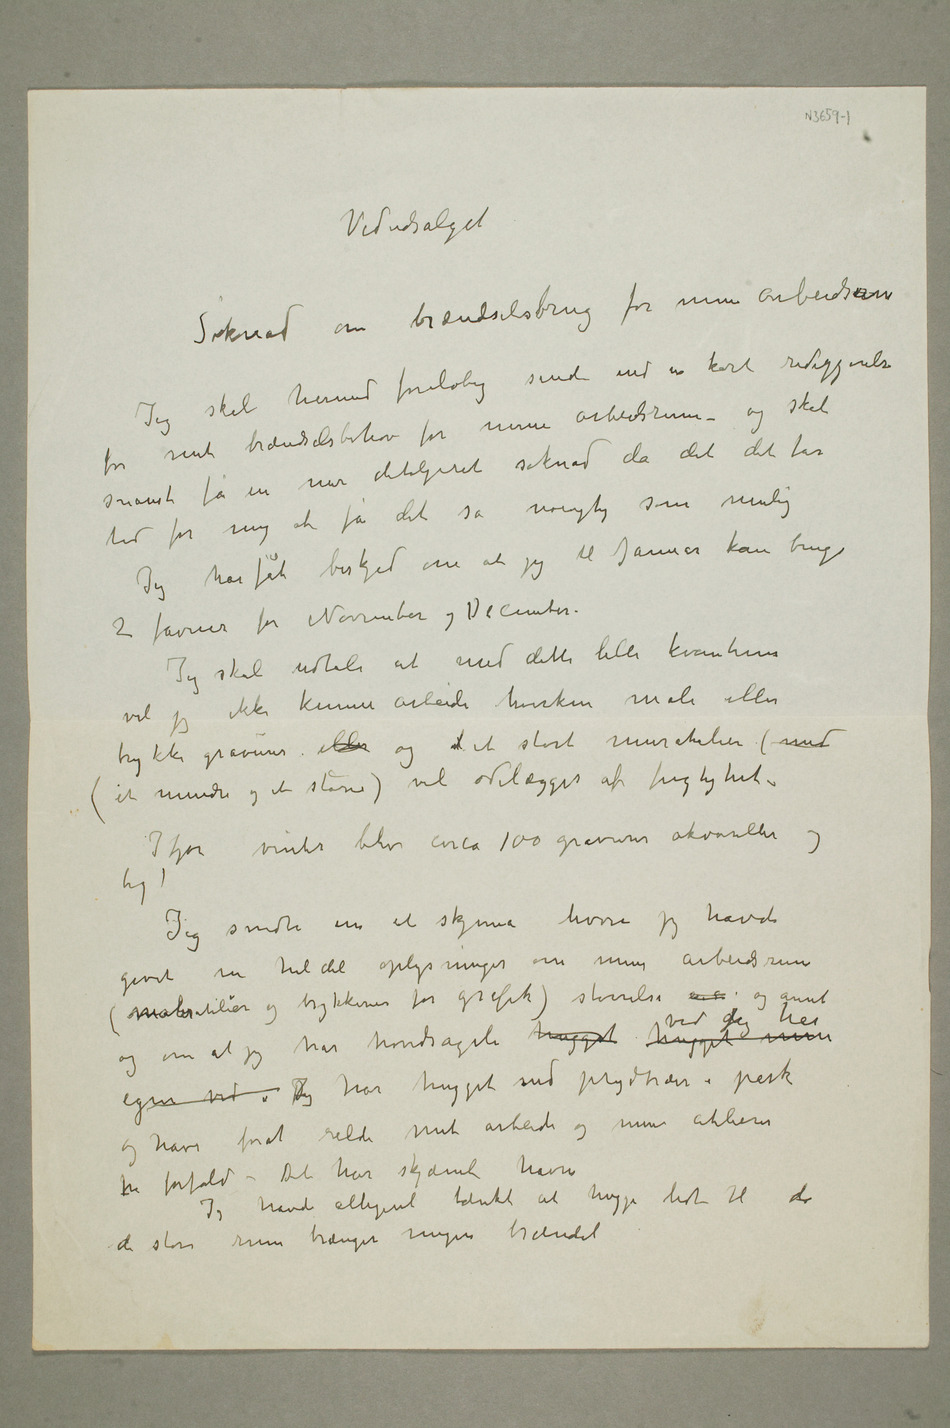 N3659-1
Vedudsalget
Søknad om brændselsbrug for mine arbeidsrum
Jeg skal hermed foreløbig sende ind en kort redegjørelse
for mit brændselsbehov for mine arbeidsrum – og skal
snarest få en mer detaljeret søknad da det det tar
tid for mig at få det så nøiagtig som mulig
Jeg har fåt beskjed om at jeg til Januar kan bruge
2 favner for November og December.
Jeg skal udtale at med dette lille kvantum
vil jeg ikke kunne arbeide hverken male eller
trykke gravurer eller og et stort muratelier (med
(et mindre og et større) vil ødelægges af fugtighet –
Ifjor vinter blev circa 100 gravurer akvareller og
teg!
Jeg sendte inn et skjema hvori jeg havde
givet en hel del oplysninger om mine arbeidsrum
(maleratelier og trykkerier for grafik) størrelse o.s. og annet
og om at jeg har hovedsagelig hugget hugget min
ved Jeg har
egen ved. Jeg har hugget ned prydtrær i park
og have forat redde mit arbeide og mine atelierer
fra forfald – Det har skjæmt haven
Jeg havde alligevel tænkt at hugge lidt til da
de store rum trænger megen brændsel